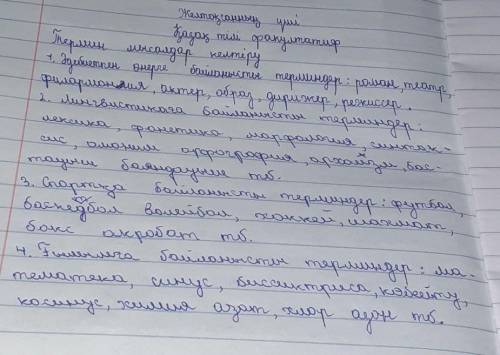 Желтоқсанның үші
Қазақ тілі факультатиф
Термин мысалдар келтіру
1. Әдебиетпен өнерге байланысты терминдер: роман, театр,
филармония, актер, образ, дирижер, режиссер.
2. Лингвистикаға байланысты терминдер:
лексика, фонетика, морфология, синтак-
сис, омоним орфография, архаизм, бас-
тауыш баяндауыш тб.
3. Спортқа байланысты терминдер: футбол,
баскедбол волейбол, хоккей, шахмат,
бокс акробат тб.
4. Ғылымға байланысты терминдер: ма-
тематека, синус, биссиктриса, көбейту,
косинус, химия азат, хлор азон тб.